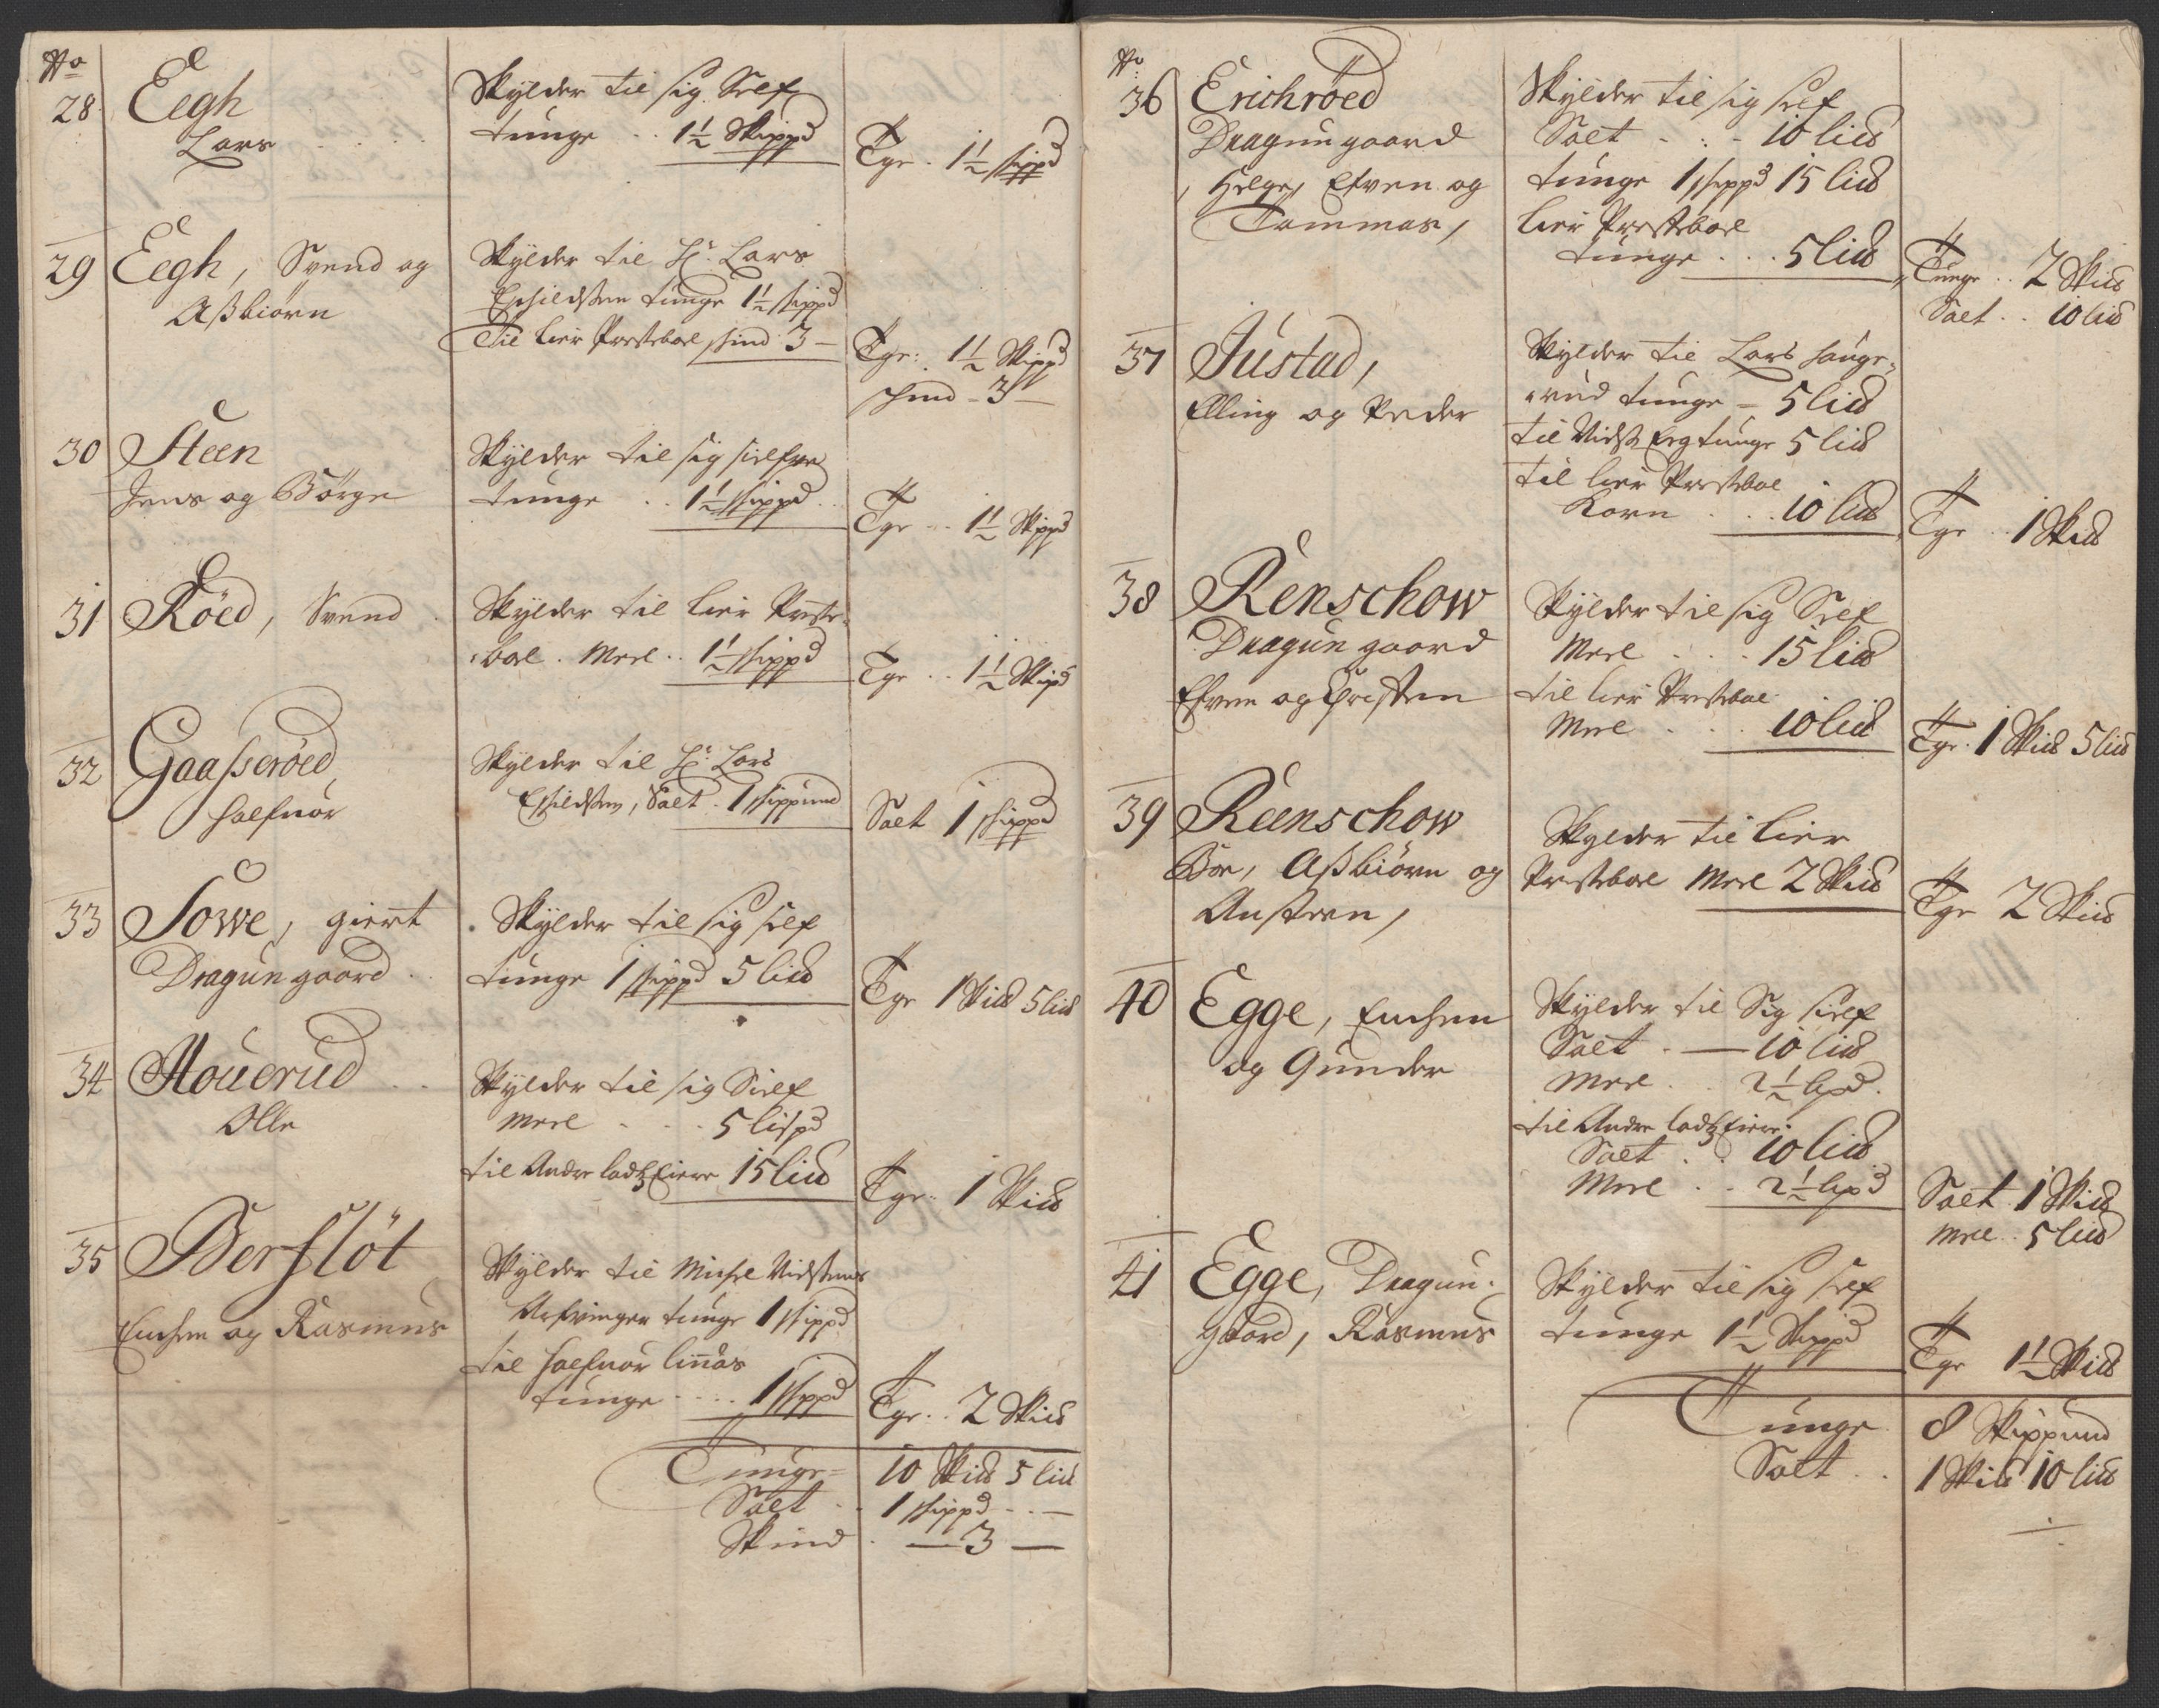 No
28 Eegh
Lars
Skylder til sig Self
tunge .. 1½ Skippd
Tge . 1½ skippd
29 Eegh, Svend og
Assbiørn
Skylder til Hr. Lars
Eschildssen tunge 1½ skippd
Til Lier Præsteboel skind 3 –
Tge: 1½ Skippd
skind – 3 –
30 Steen
Jens og Börge
Skylder til sig sielfue
tunge .. 1½ skippd
Tge .. 1½ Skippd
31 Röed, Svend
Skylder til Lier Præste-
boel . Meel .. 1½ skippd
Tge .. 1½ Skipd
32 Gaasseröed
Halfuor
Skylder til Hr. Lars
Eschildssen, Salt . 1 skippund
Salt 1 skippd
33 Sowe, giert
Dragun gaard
Skylder til sig self
tunge 1 skippd 5 Lisd
Tge 1 Skisd 5 Lisd
34 Houerud
Olle
Skylder til sig Sielf
Meel . . . 5 Lispd
til Andre Lodtz Eiere 15 Lisd
Tge . 1 Skisd
35 Berflöt
Enchen og Rasmus
Skylder til Michel Nidstens
Arfvinger tunge 1 skippd
til Halfuor Linnæs
tunge .... 1 skippd
Tge .. 2 Skisd
Tunge – 10 Skisd 5 Lisd
Salt .. 1 skippd . . –
Skind . — 3 —
No
36 Erichröed
Dragun gaard
Helge, Efven og
Tommas,
Skylder til sig self
Salt - . - 10 Lisd
tunge 1 skippd 15 Lisd
Lier Præsteboel
tunge . . . 5 Lisd
Tunge .. 2 Skisd
Salt .. 10 Lisd
37 Justad,
Elling og Peder
Skylder til Lars Hauge-
rud tunge – 5 Lisd
til Nidst Eeg tunge 5 Lisd
til Lier Præsteboel
Korn . . . 10 Lisd
Tge . . 1 Skisd
38 Renschow
Dragun gaard
Efven og Christen
Skylder til sig Self
Meel . . . 15 Lisd
til Lier Præsteboel
Meel . . . 10 Lisd
Tge . 1 Skisd 5 Lisd
39 Reenschow
Boe, Assbiörn og
Austeen,
Skylder til Lier
Præsteboel Meel 2 Skisd
Tge 2 Skisd
40 Egge, Enchen
og Gunder
Skylder til Sig Sielf
Salt . — 10 Lisd
Meel . . 2½ Lispd.
til Andre Lodtz Eiere
Salt . . 10 Lisd
Meel . . 2½ Lispd
Salt 1 Skisd
Meel . 5 Lisd
41 Egge, Dragun-
gaard, Rasmus
Skylder til sig self
tunge 1½ Skippd
Tge 1½ Skisd
Tunge 8 Skippund
Salt . . 1 Skisd 10 Lisd